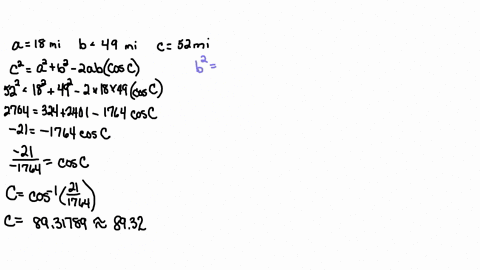 a = 18 mi b = 49 mi c = 52 mi
c² = a² + b² - 2ab(cos C)
52² = 18² + 49² - 2 × 18 × 49 (cos C)
2704 = 324 + 2401 - 1764 cos C
-21 = -1764 cos C
-21/-1764 = cos C
C = cos⁻¹(21/1764)
C = 89.31789 ≈ 89.32
b² =